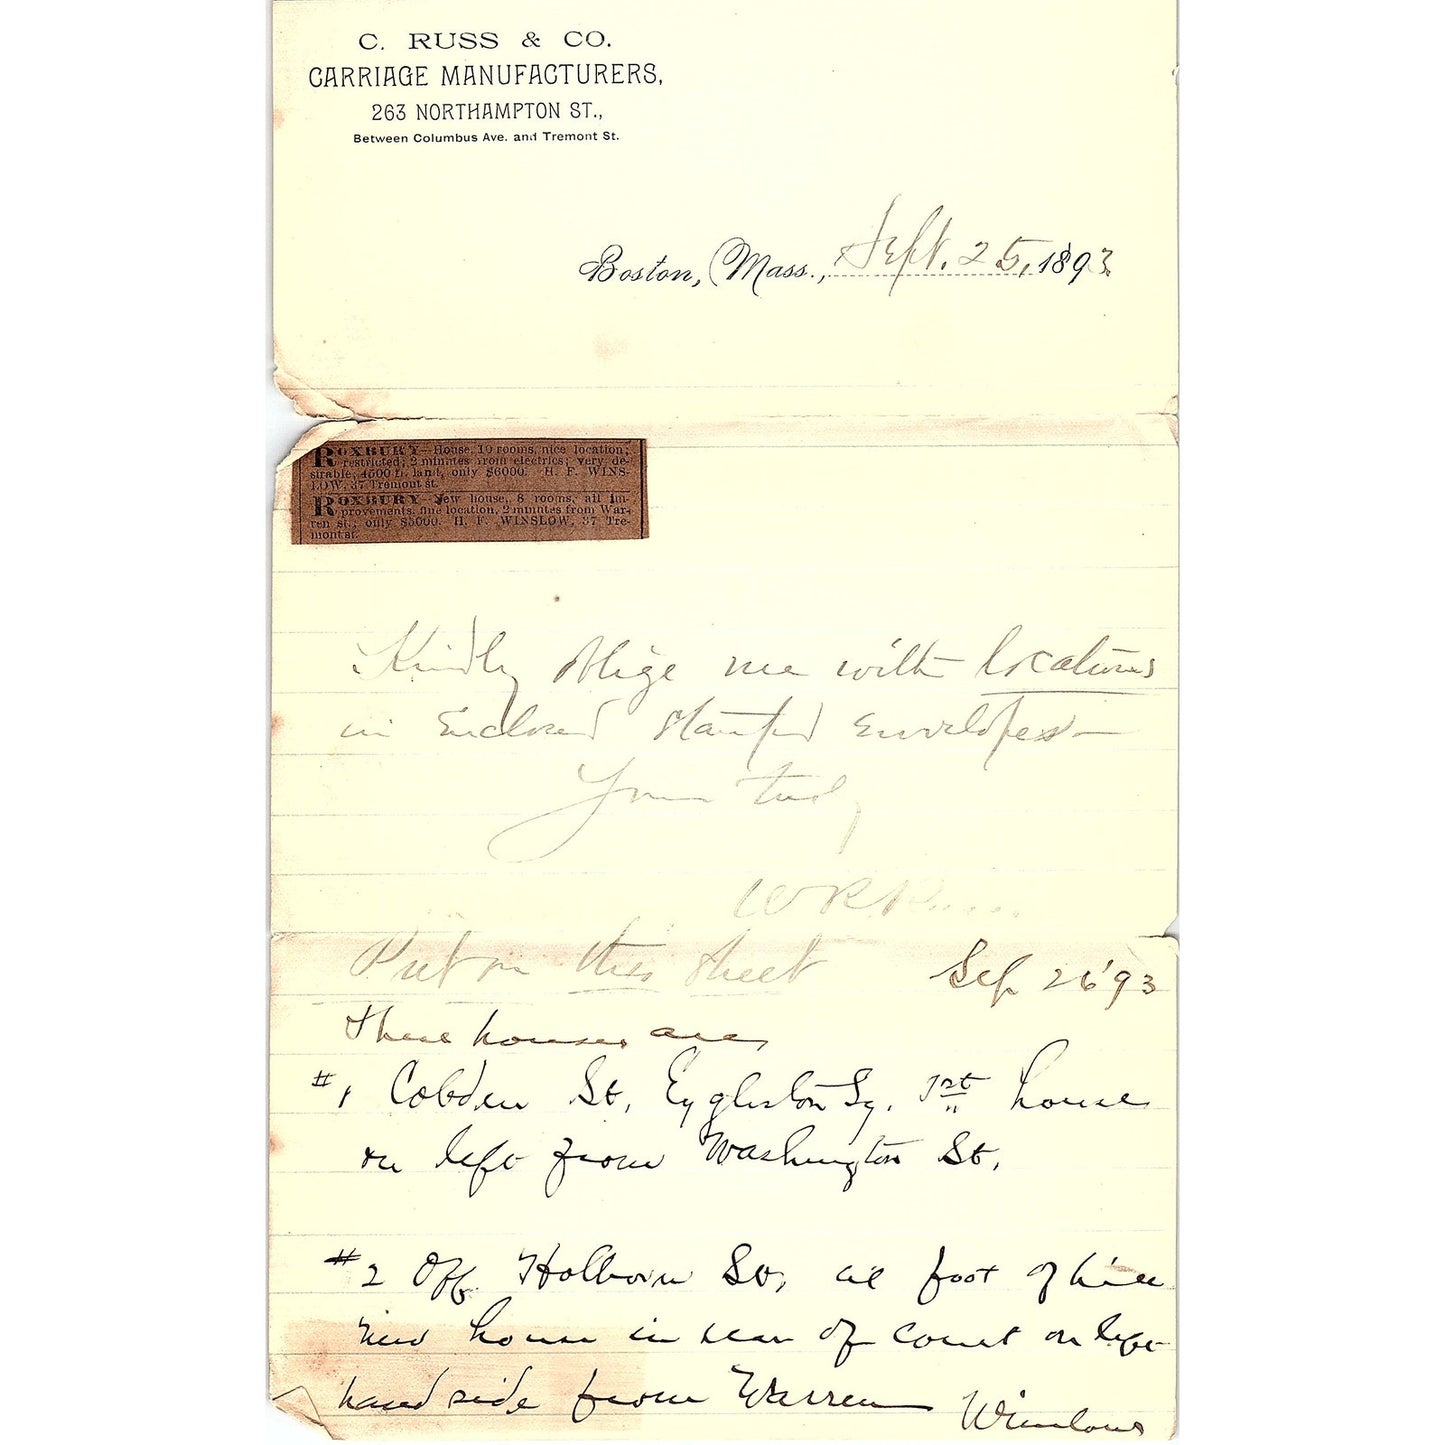 C. RUSS & CO.
CARRIAGE MANUFACTURERS,
263 NORTHAMPTON ST.,
Between Columbus Ave. and Tremont St.
Boston, Mass., Sept. 25, 1893
ROXBURY—House, 10 rooms, nice location;
restricted; 2 minutes from electrics; very de-
sirable; 4500 ft. land, only $6000. H. F. WINS-
LOW, 37 Tremont st.
ROXBURY—New house, 8 rooms, all im-
provements, fine location, 2 minutes from War-
ren st.; only $5000. H. F. WINSLOW, 37 Tre-
mont st.
Kindly oblige me with locations
in Enclosed stamped Envelopes—
Yours truly
W R
Put on this sheet
Sep 26 '93
These houses are
#1 Cobden St, Eggleston Sq. 1st house
on left from Washington St.
#2 Off Holborn St, at foot of hill
new house in rear of court on left
hand side from Warren
Winslow